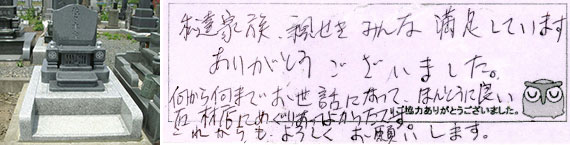 私達家族、親せき みんな 満足しています
ありがとう ございました。
何から何までお世話になって、ほんとうに良い
石材店にめぐりあってよかったです。
これからも よろしく お願いします。
ご協力ありがとうございました。